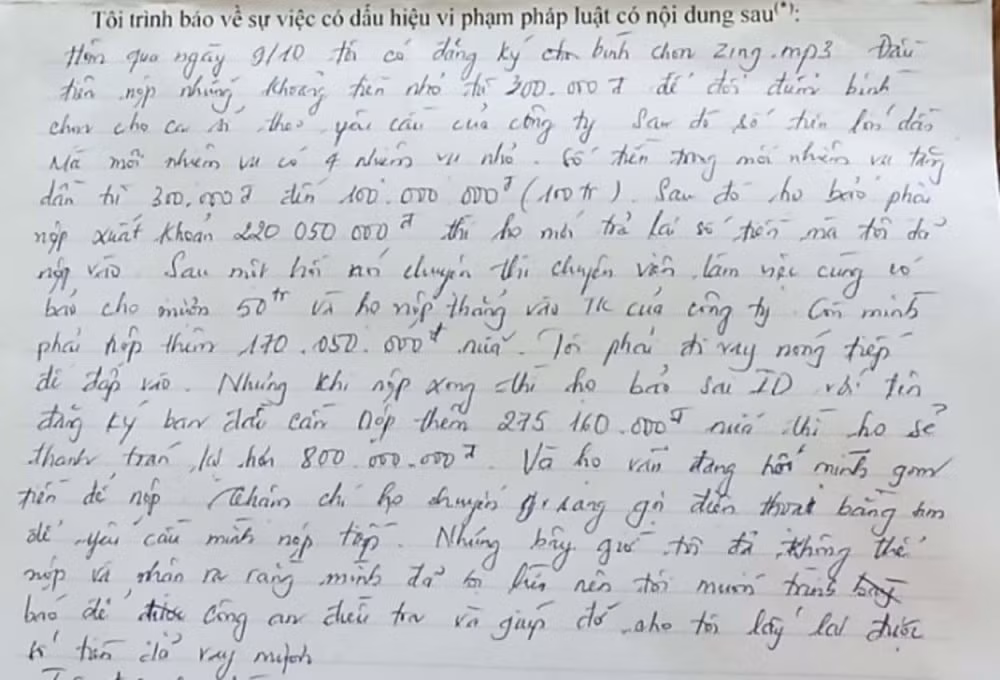 Tôi trình báo về sự việc có dấu hiệu vi phạm pháp luật có nội dung sau(*):
Hôm qua ngày 9/10 tôi có đăng ký bình chọn zing.mp3 Đầu
tiên nộp những khoảng tiền nhỏ từ 300.000đ để đổi điểm bình
chọn cho ca sĩ theo yêu cầu của công ty Sau đó số tiền lớn dần
Mà mỗi nhiệm vụ có 4 nhiệm vụ nhỏ. Số tiền trong mỗi nhiệm vụ tăng
dần từ 300.000đ đến 100.000 000đ (100tr). Sau đó họ bảo phải
nộp xuất khoản 220 050 000đ thì họ mới trả lại số tiền mà tôi đã
nộp vào Sau một hồi nói chuyện thì chuyên viên làm việc cùng có
báo cho mượn 50tr và họ nộp thẳng vào TK của công ty. Còn mình
phải nộp thêm 170.050.000đ nữa. Tôi phải đi vay nóng tiếp
để đắp vào. Nhưng khi nộp xong thì họ bảo sai ID với tên
đăng ký ban đầu cần nộp thêm 275 160.000đ nữa thì họ sẽ
thanh toán lại hơn 800.000.000đ. Và họ vẫn đang hối mình gom
tiền để nộp Thậm chí họ chuyển sang gọi điện thoại bằng sim
để yêu cầu mình nộp tiếp. Nhưng bây giờ tôi đã không thể
nộp và nhận ra rằng mình đã bị lừa nên tôi muốn trình
báo để được công an điều tra và giúp đỡ cho tôi lấy lại được
số tiền đã vay mượn